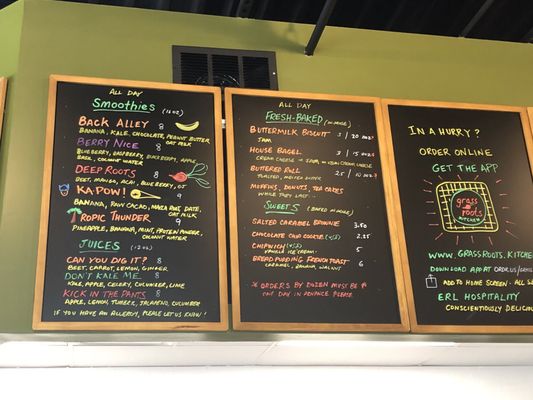 ALL DAY
Smoothies (16 OZ)
BACK ALLEY 8
BANANA, KALE, CHOCOLATE, PEANUT BUTTER
OAT MILK
BERRY NICE 8
BLUEBERRY, RASPBERRY, BLACKBERRY, APPLE
COCONUT WATER
DEEP ROOTS 8
BEET, MANGO, ACAI, BLUEBERRY, OAT MILK
KA-POW! 9
BANANA, RAW CACAO, MACA, DATE,
OAT MILK
TROPIC THUNDER 9
PINEAPPLE, BANANA, MINT, PROTEIN POWDER,
COCONUT WATER
JUICES (12 OZ)
CAN YOU DIG IT? 8
BEET, CARROT, LEMON, GINGER
DON'T KALE ME. 8
KALE, APPLE, CELERY, CUCUMBER, LIME
KICK IN THE PANTS 8
APPLE, LEMON, TUMERIC, JALAPENO, CUCUMBER
IF YOU HAVE AN ALLERGY, PLEASE LET US KNOW!
ALL DAY
FRESH-BAKED (IN HOUSE)
BUTTERMILK BISCUIT 3 / 20 DOZEN
JAM
HOUSE BAGEL 3 / 15 DOZEN
CREAM CHEESE
BUTTERED ROLL 2.5 / 10 DOZEN
TOASTED, MELTED BUTTER
MUFFINS, DONUTS, TEA CAKES
WHILE THEY LAST...
SWEETS (BAKED IN HOUSE)
SALTED CARAMEL BROWNIE 3.50
CHOCOLATE CHIP COOKIE 2.25
CHIPWICH 5
VANILLA ICE CREAM
BREAD PUDDING FRENCH TOAST 6
CARAMEL, BANANA, WALNUT
* ORDERS BY DOZEN MUST BE
ONE DAY IN ADVANCE PLEASE
IN A HURRY?
ORDER ONLINE
GET THE APP
grass
roots
KITCHEN
WWW.GRASSROOTS.KITCHEN
DOWNLOAD APP AT
ADD TO HOME SCREEN -
ERL HOSPITALITY
CONSCIENTIOUSLY DELICIO